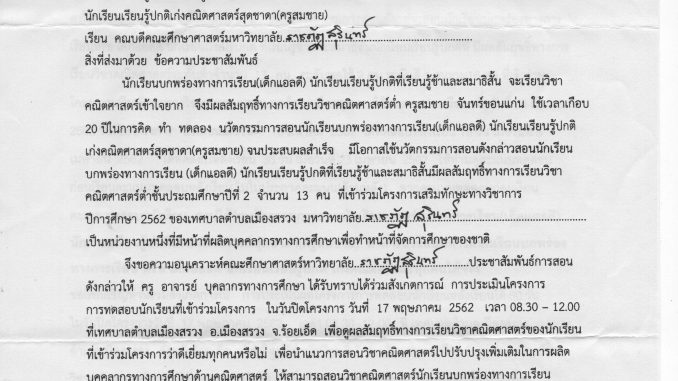 นักเรียนเรียนรู้ปกติเก่งคณิตศาสตร์สุดชาดา(ครูสมชาย)
เรียน คณบดีคณะศึกษาศาสตร์มหาวิทยาลัย ราชภัฏสุรินทร์
สิ่งที่ส่งมาด้วย ข้อความประชาสัมพันธ์
นักเรียนบกพร่องทางการเรียน(เด็กแอลดี) นักเรียนเรียนรู้ปกติที่เรียนรู้ช้าและสมาธิสั้น จะเรียนวิชา
คณิตศาสตร์เข้าใจยาก จึงมีผลสัมฤทธิ์ทางการเรียนวิชาคณิตศาสตร์ต่ำ ครูสมชาย จันทร์ขอนแก่น ใช้เวลาเกือบ
20 ปีในการคิด ทำ ทดลอง นวัตกรรมการสอนนักเรียนบกพร่องทางการเรียน(เด็กแอลดี) นักเรียนเรียนรู้ปกติ
เก่งคณิตศาสตร์สุดชาดา(ครูสมชาย) จนประสบผลสำเร็จ มีโอกาสใช้นวัตกรรมการสอนดังกล่าวสอนนักเรียน
บกพร่องทางการเรียน (เด็กแอลดี) นักเรียนเรียนรู้ปกติที่เรียนรู้ช้าและสมาธิสั้นมีผลสัมฤทธิ์ทางการเรียนวิชา
คณิตศาสตร์ต่ำชั้นประถมศึกษาปีที่ 2 จำนวน 13 คน ที่เข้าร่วมโครงการเสริมทักษะทางวิชาการ
ปีการศึกษา 2562 ของเทศบาลตำบลเมืองสรวง มหาวิทยาลัย ราชภัฏสุรินทร์
เป็นหน่วยงานหนึ่งที่มีหน้าที่ผลิตบุคคลากรทางการศึกษาเพื่อทำหน้าที่จัดการศึกษาของชาติ
จึงขอความอนุเคราะห์คณะศึกษาศาสตร์มหาวิทยาลัย ราชภัฏสุรินทร์ ประชาสัมพันธ์การสอน
ดังกล่าวให้ ครู อาจารย์ บุคลากรทางการศึกษา ได้รับทราบได้ร่วมสังเกตการณ์ การประเมินโครงการ
การทดสอบนักเรียนที่เข้าร่วมโครงการ ในวันปิดโครงการ วันที่ 17 พฤษภาคม 2562 เวลา 08.30 – 12.00
ที่เทศบาลตำบลเมืองสรวง อ.เมืองสรวง จ.ร้อยเอ็ด เพื่อดูผลสัมฤทธิ์ทางการเรียนวิชาคณิตศาสตร์ของนักเรียน
ที่เข้าร่วมโครงการว่าดีเยี่ยมทุกคนหรือไม่ เพื่อนำแนวการสอนวิชาคณิตศาสตร์ไปปรับปรุงเพิ่มเติมในการผลิต
บุคคลากรทางการศึกษาด้านคณิตศาสตร์ ให้สามารถสอนวิชาคณิตศาสตร์นักเรียนบกพร่องทางการเรียน